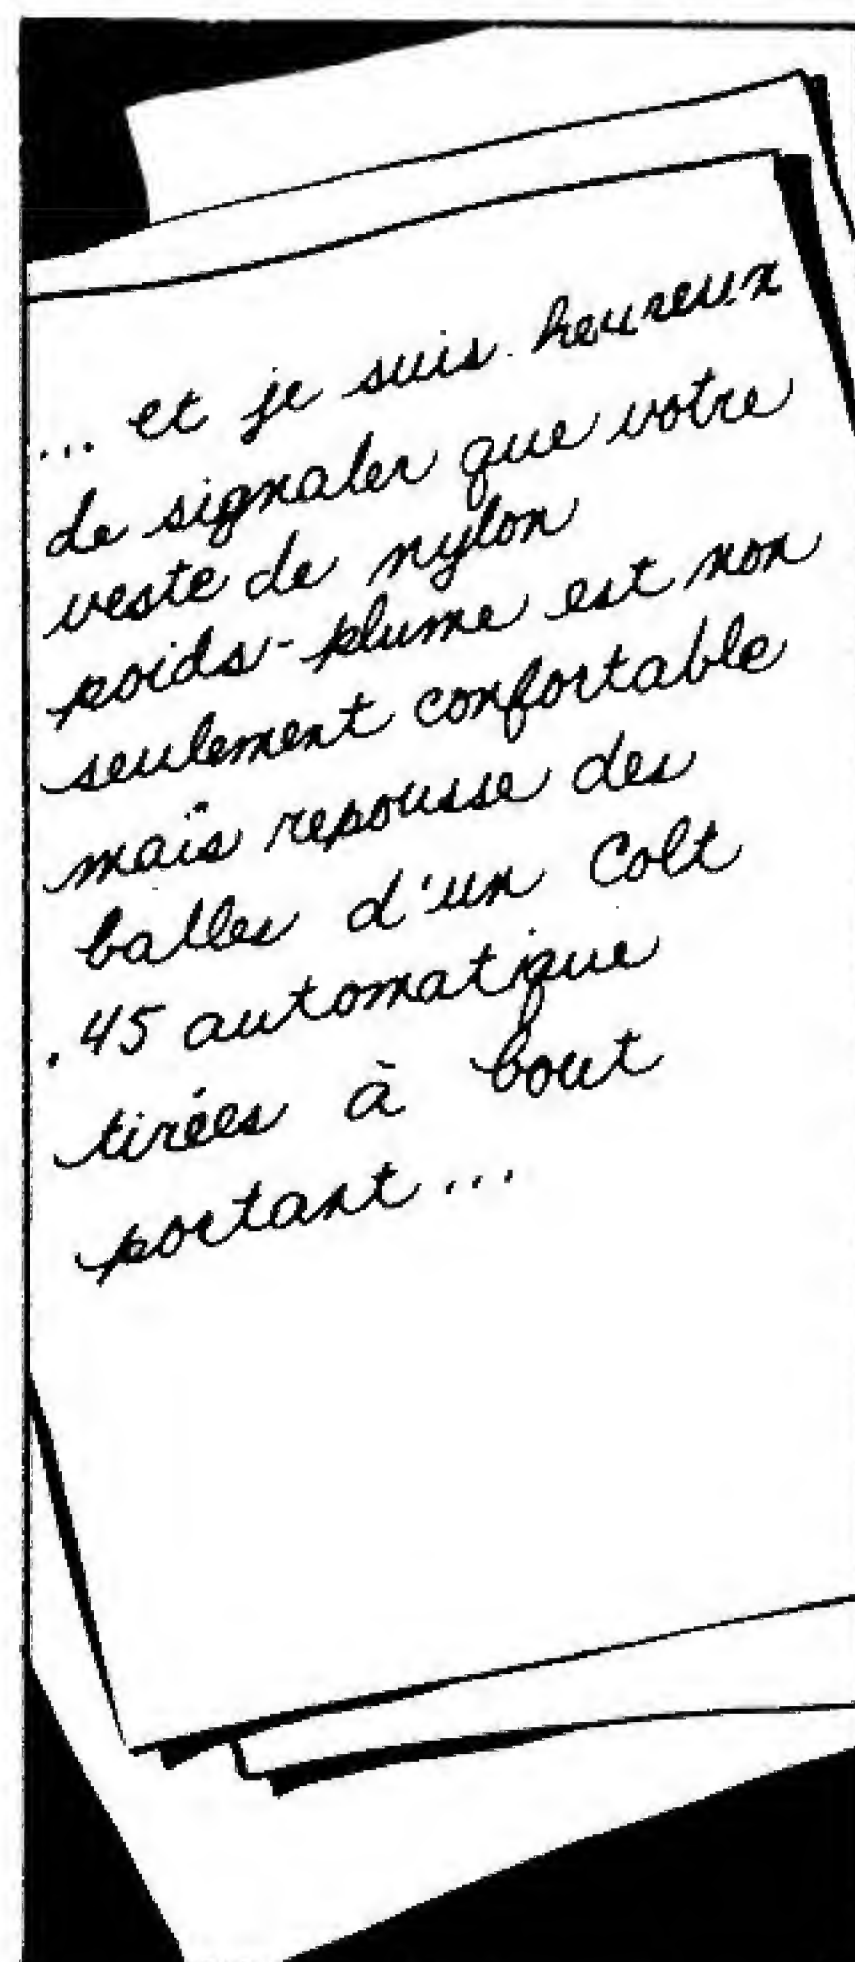 ... et je suis heureux
de signaler que votre
veste de nylon
poids-plume est non
seulement confortable
maïs repousse des
balles d'un Colt
.45 automatique
tirées à bout
portant...